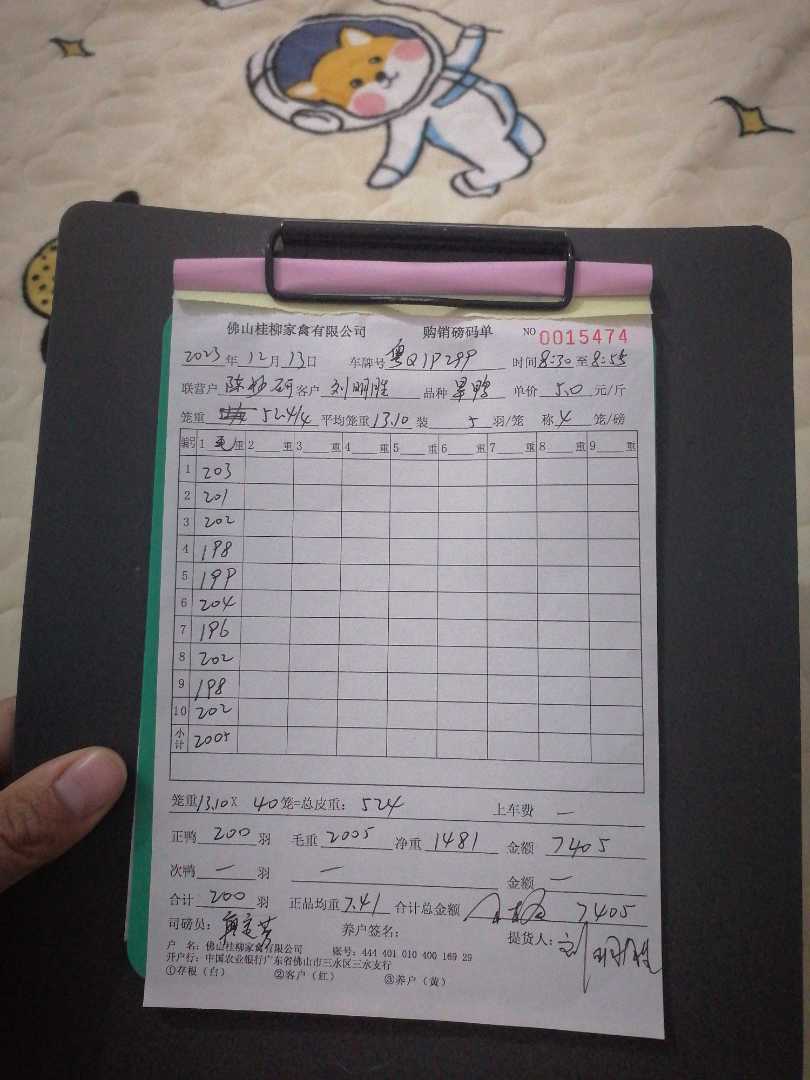 佛山桂柳家禽有限公司 购销磅码单 NO 0015474
2023年12月13日 车牌号 粤Q1P299 时间8:30至8:55
联营户 陈 客户 刘明胜 品种 旱鸭 单价 5.0 元/斤
笼重 52.4/4 平均笼重13.10 装 5 羽/笼 称 4 笼/磅
编号 1 毛 重 2 重 3 重 4 重 5 重 6 重 7 重 8 重 9 重
1 203
2 201
3 202
4 198
5 199
6 204
7 196
8 202
9 198
10 202
小计 2005
笼重13.10 X 40笼=总皮重: 524 上车费 —
正鸭 200 羽 毛重 2005 净重 1481 金额 7405
次鸭 — 羽 — 金额 —
合计 200 羽 正品均重 7.41 合计总金额 7405
司磅员: 养户签名: 提货人: 刘明胜
户 名: 佛山桂柳家禽有限公司 账号: 444 401 010 400 169 29
开户行: 中国农业银行广东省佛山市三水区三水支行
①存根(白) ②客户(红) ③养户(黄)